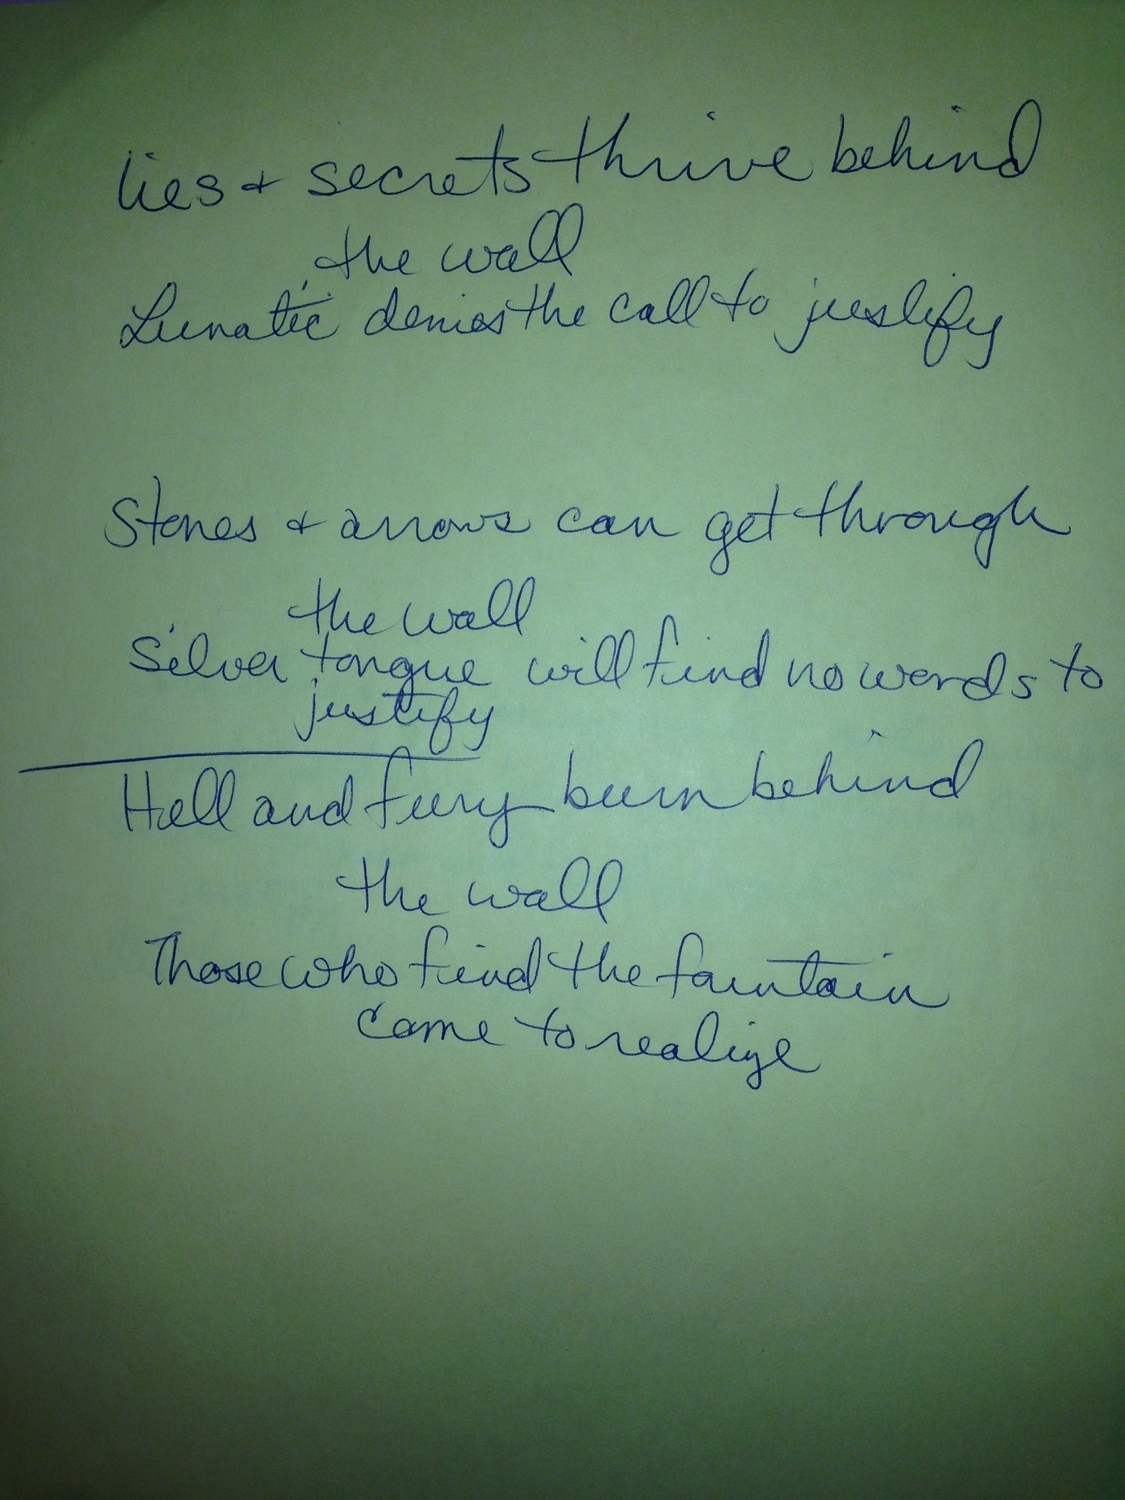 lies + secrets thrive behind
the wall
Lunatic denies the call to justify
Stones + arrows can get through
the wall
Silver tongue will find no words to
justify
Hell and fury burn behind
the wall
Those who find the fountain
come to realize